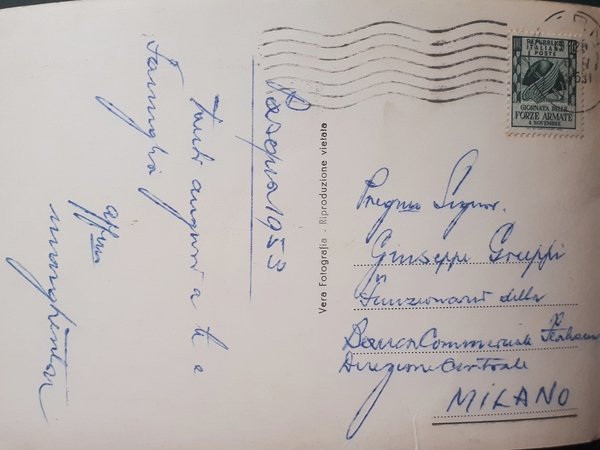 Pasqua 1953
Tanti auguri a te e
Famiglia
aff.mo
Vera Fotografia - Riproduzione vietata
REPUBBLICA
ITALIANA
POSTE
GIORNATA DELLE
FORZE ARMATE
4 NOVEMBRE
Pregmo Signor.
Giuseppe Greppi
Funzionario della
Banca Commerciale Italiana
Direzione Centrale
MILANO